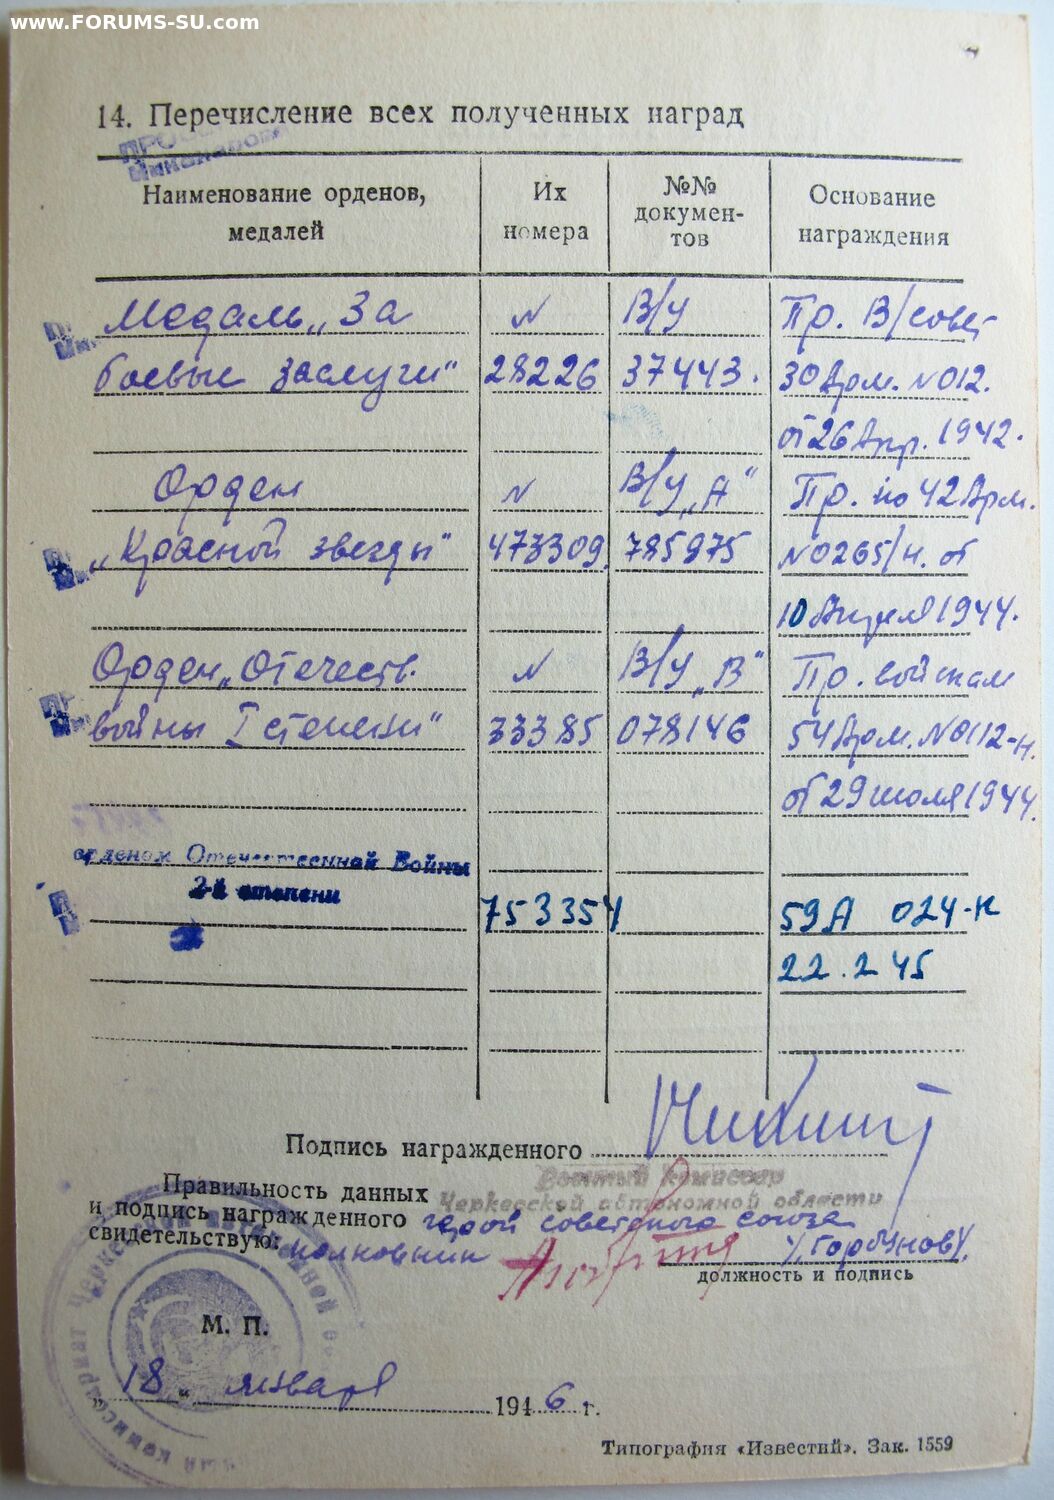 www.FORUMS-SU.com
14. Перечисление всех полученных наград
Наименование орденов, медалей
Их номера
№№ докумен-тов
Основание награждения
Медаль „За № В/У Пр. В/совет
боевые заслуги“ 28226 37443. 30 Арм. №012.
от 26 Апр. 1942.
Орден № В/У „А“ Пр. по 42 Арм.
„Красной звезды“ 473309. 785975 №0265/н. от
10 Апреля 1944.
Орден „Отечеств. № В/У „В“ Пр. войскам
войны I степени“ 33385 078146 54 Арм. №0112-н.
от 29 июля 1944.
орденом Отечественной Войны
2-й степени 753354 59А 024-н
22.2 45
Подпись награжденного
Военный комиссар
Правильность данных
Черкесской автономной области
и подпись награжденного герой советского союза
свидетельствую: полковник /Горбунов/.
должность и подпись
М. П.
„18“ января 1946 г.
Типография «Известий». Зак. 1559